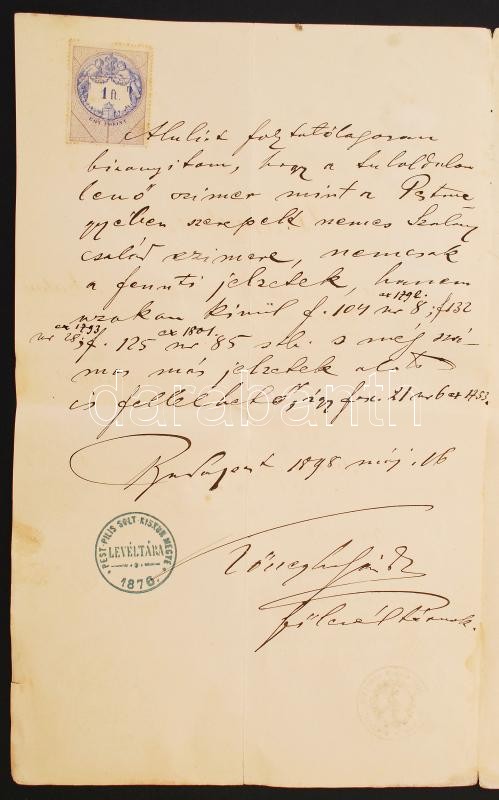 1 ft.
EGY FORINT
Alulirt foytatólagosan
bizonyitom, hogy a tuloldalon
levő czimer mint a Pestme
gyében szerepelt nemes Szalay
család czimere, nemcsak
a fennti jelzetek, hanem
azokon kivül f. 104 nr 8 ex 1792. ; f 132
nr 28 ex 1793; f. 125 nr 85 ex 1801 stb. s még szá-
mos más jelzetek alatt
is fellelhető, így fsc. 21 nr 6 ex 1753.
Budapest 1898 máj. 16
PEST-PILIS-SOLT-KISKUN MEGYE
LEVÉLTÁRA
1876.
főlevéltárnok.
darabanth